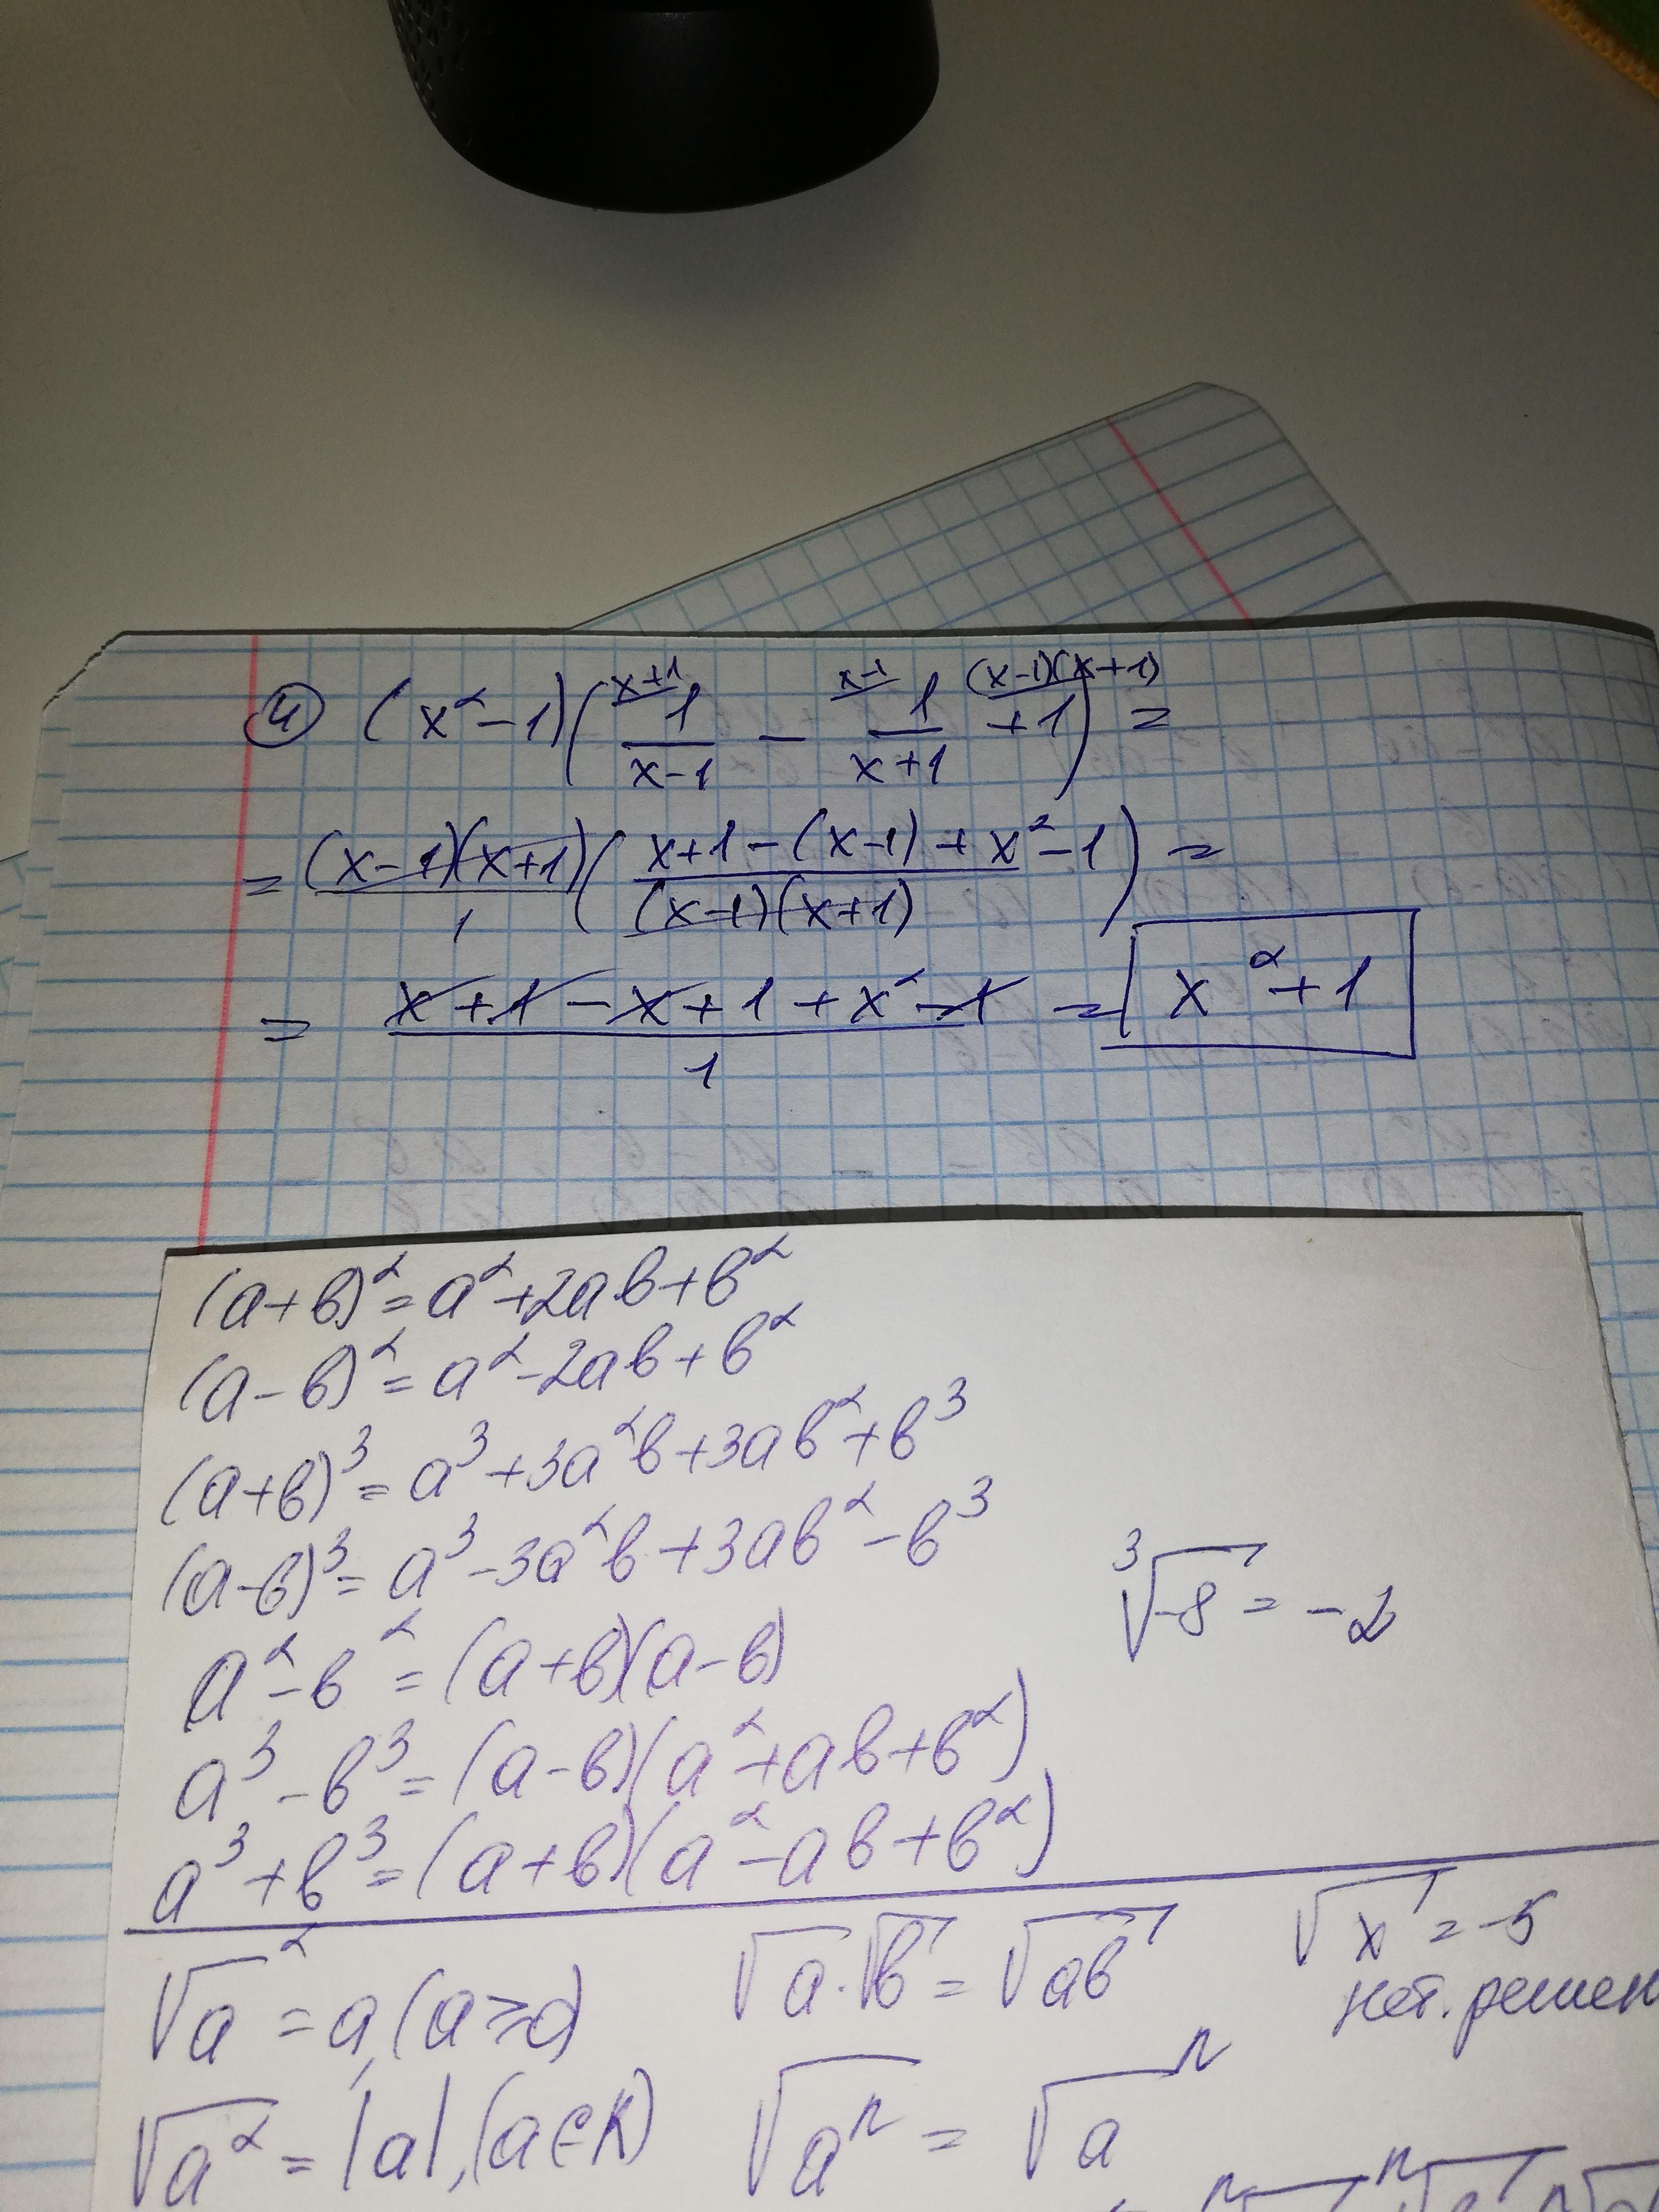 ④ (x²-1)(x+1 1/(x-1) - x-1 1/(x+1) (x-1)(x+1) +1) =
= (x-1)(x+1)/1 ((x+1-(x-1)+x²-1)/((x-1)(x+1))) =
= (x+1-x+1+x²-1)/1 = x²+1
(a+в)²=a²+2aв+в²
(a-в)²=a²-2aв+в²
(a+в)³=a³+3a²в+3aв²+в³
(a-в)³=a³-3a²в+3aв²-в³
∛-8 = -2
a²-в²=(a+в)(a-в)
a³-в³=(a-в)(a²+aв+в²)
a³+в³=(a+в)(a²-aв+в²)
√a² = a, (a≥0) √a·√в = √aв √x = -5
нет. решен
√a² = |a|, (a∈R) √aⁿ = √aⁿ